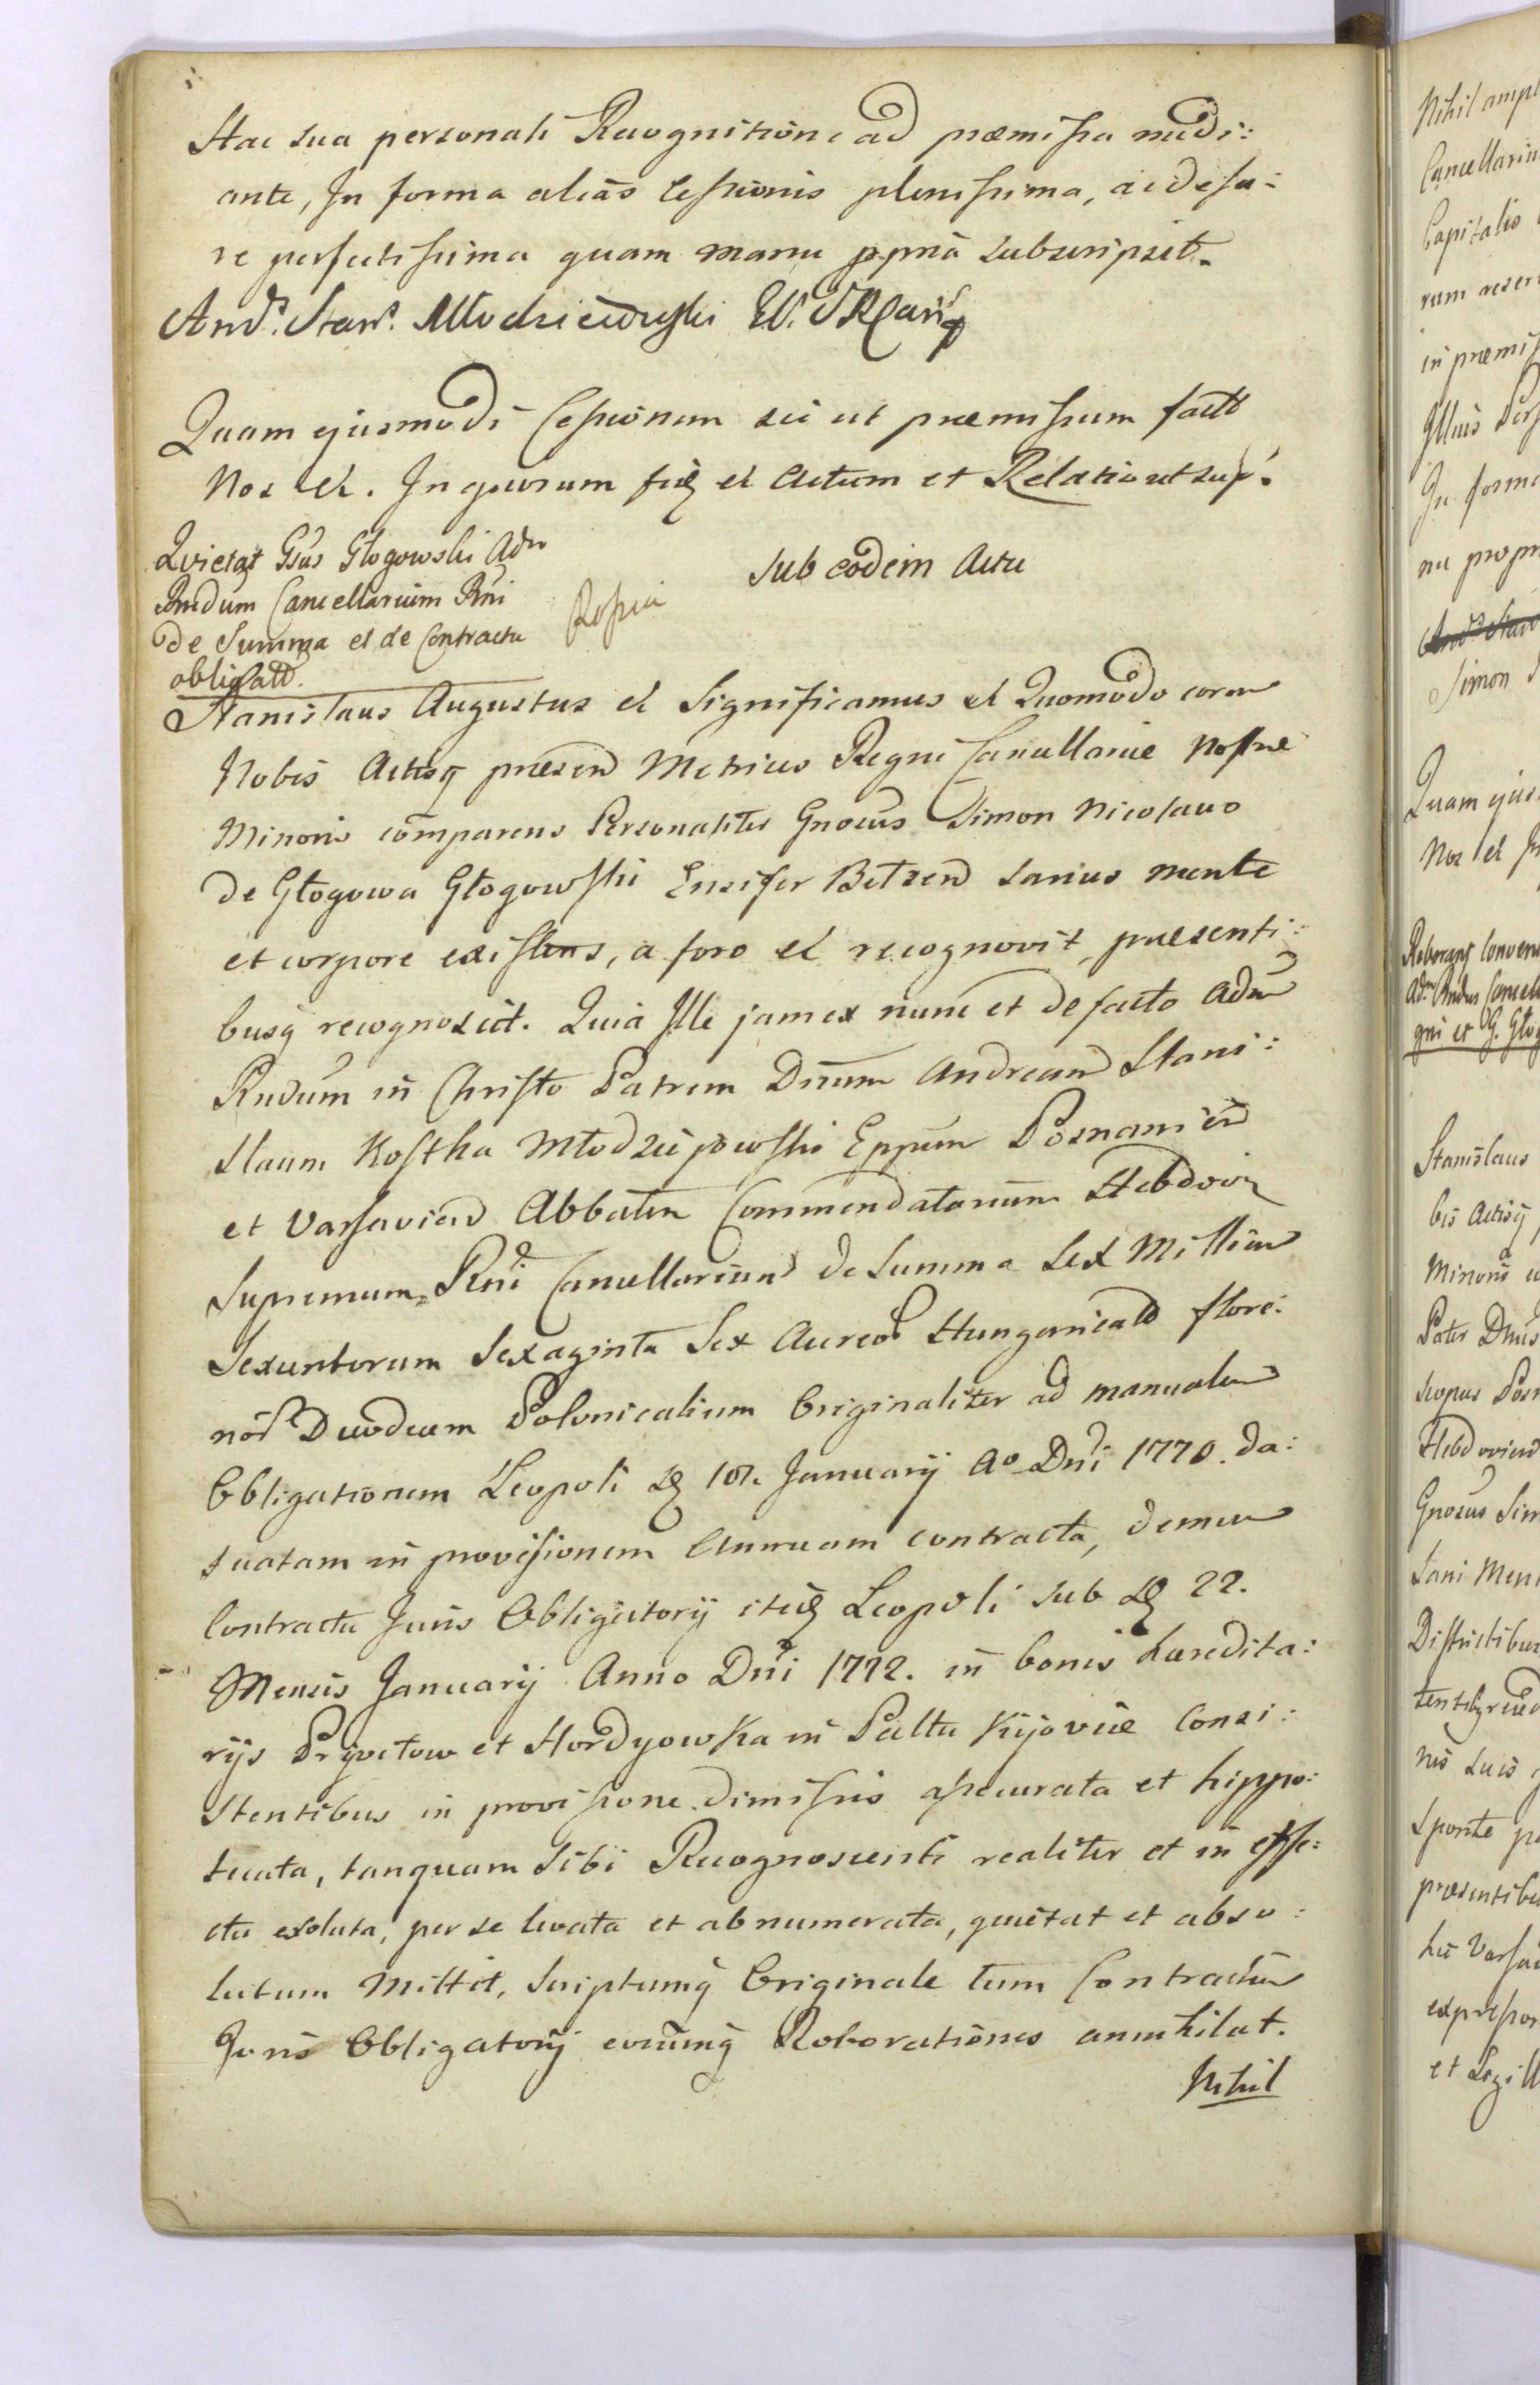 Hac sua personali Recognitione ad præmissa medi:
ante, In forma alias Cessionis plenissima, ac de ju:
re perfectissima quam manu ppria subscripsit.
And: Stan: Młodzieiowski EP. SRCan
Quam ejusmodi Cessionem sic ut præmissum fact
Nos et. In quorum fid et Actum et Relatio ut sup.
Qvietat Gsus Głogowski Adm
Rndum Cancellarium Rni
de Summa et de Contractu
obligatt.
Sub eodem Actu
Stanislaus Augustus et Significamus et Quomodo coram
Nobis Actisq præsen Metrices Regni Cancellariæ Nostræ
Minoris comparens Personaliter Gnosus Simon Nicolaus
de Głogowa Głogowski Ensifer Betzen sanus mente
et corpore existens, a foro et recognovit, præsenti:
busq recognoscit. Quia Ille jam ex nunc et de facto Adm
Rndum in Christo Patrem Dnum Andream Stani:
slaum Kostka Młodziejowski Eppum Posnanien
et Varsavien Abbatem Commendatarium Hebdovien
Supremum Rni Cancellarium de Summa Sex Millium
Sexcentorum Sexaginta Sex Aureor Hungaricalt flore:
nor Duodecim Polonicalium Originaliter ad manualem
Obligationem Leopoli D 10. January Ao Dni 1770. da:
tuatam in provisionem Annuam contracta, demum
Contractu Juris Obligatorij itid Leopoli sub D 22.
Mensis January Anno Dni 1772. in bonis hæredita:
rijs Pryvitow et Hordyowka in Palttu Kijoviæ Consi:
stentibus in provisione dimissis assecurata et hippo:
tecata, tanquam sibi Recognoscenti realiter et in effe:
ctu exoluta, per se levata et abnumerata, quietat et abso:
lutum Mittit, Scriptumq Originale tum Contractum
Juris Obligatorij eorumq Roborationes annihilat.
Nihil
Nihil ampl
Cancellariu
Capitalis
in præmis
In forma
nu propr
Simon
Quam ejus
Nos et In
Roborant Conven
Adm Rndus Cancel
gni et G. Głog
Stanislaus
bis Actisq
Minoris co
Pater Dnus
scopus Posn
Hebdovien
Gnosus Sim
Sani Men
Districtibus
nis suis
Sponte
præsentibu
hic Varsa
et Sigill